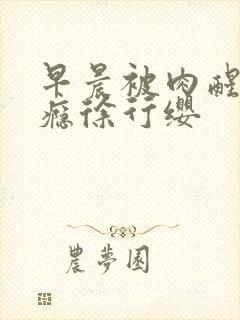 早晨被肉醒
瘾徐行缨
農夢園